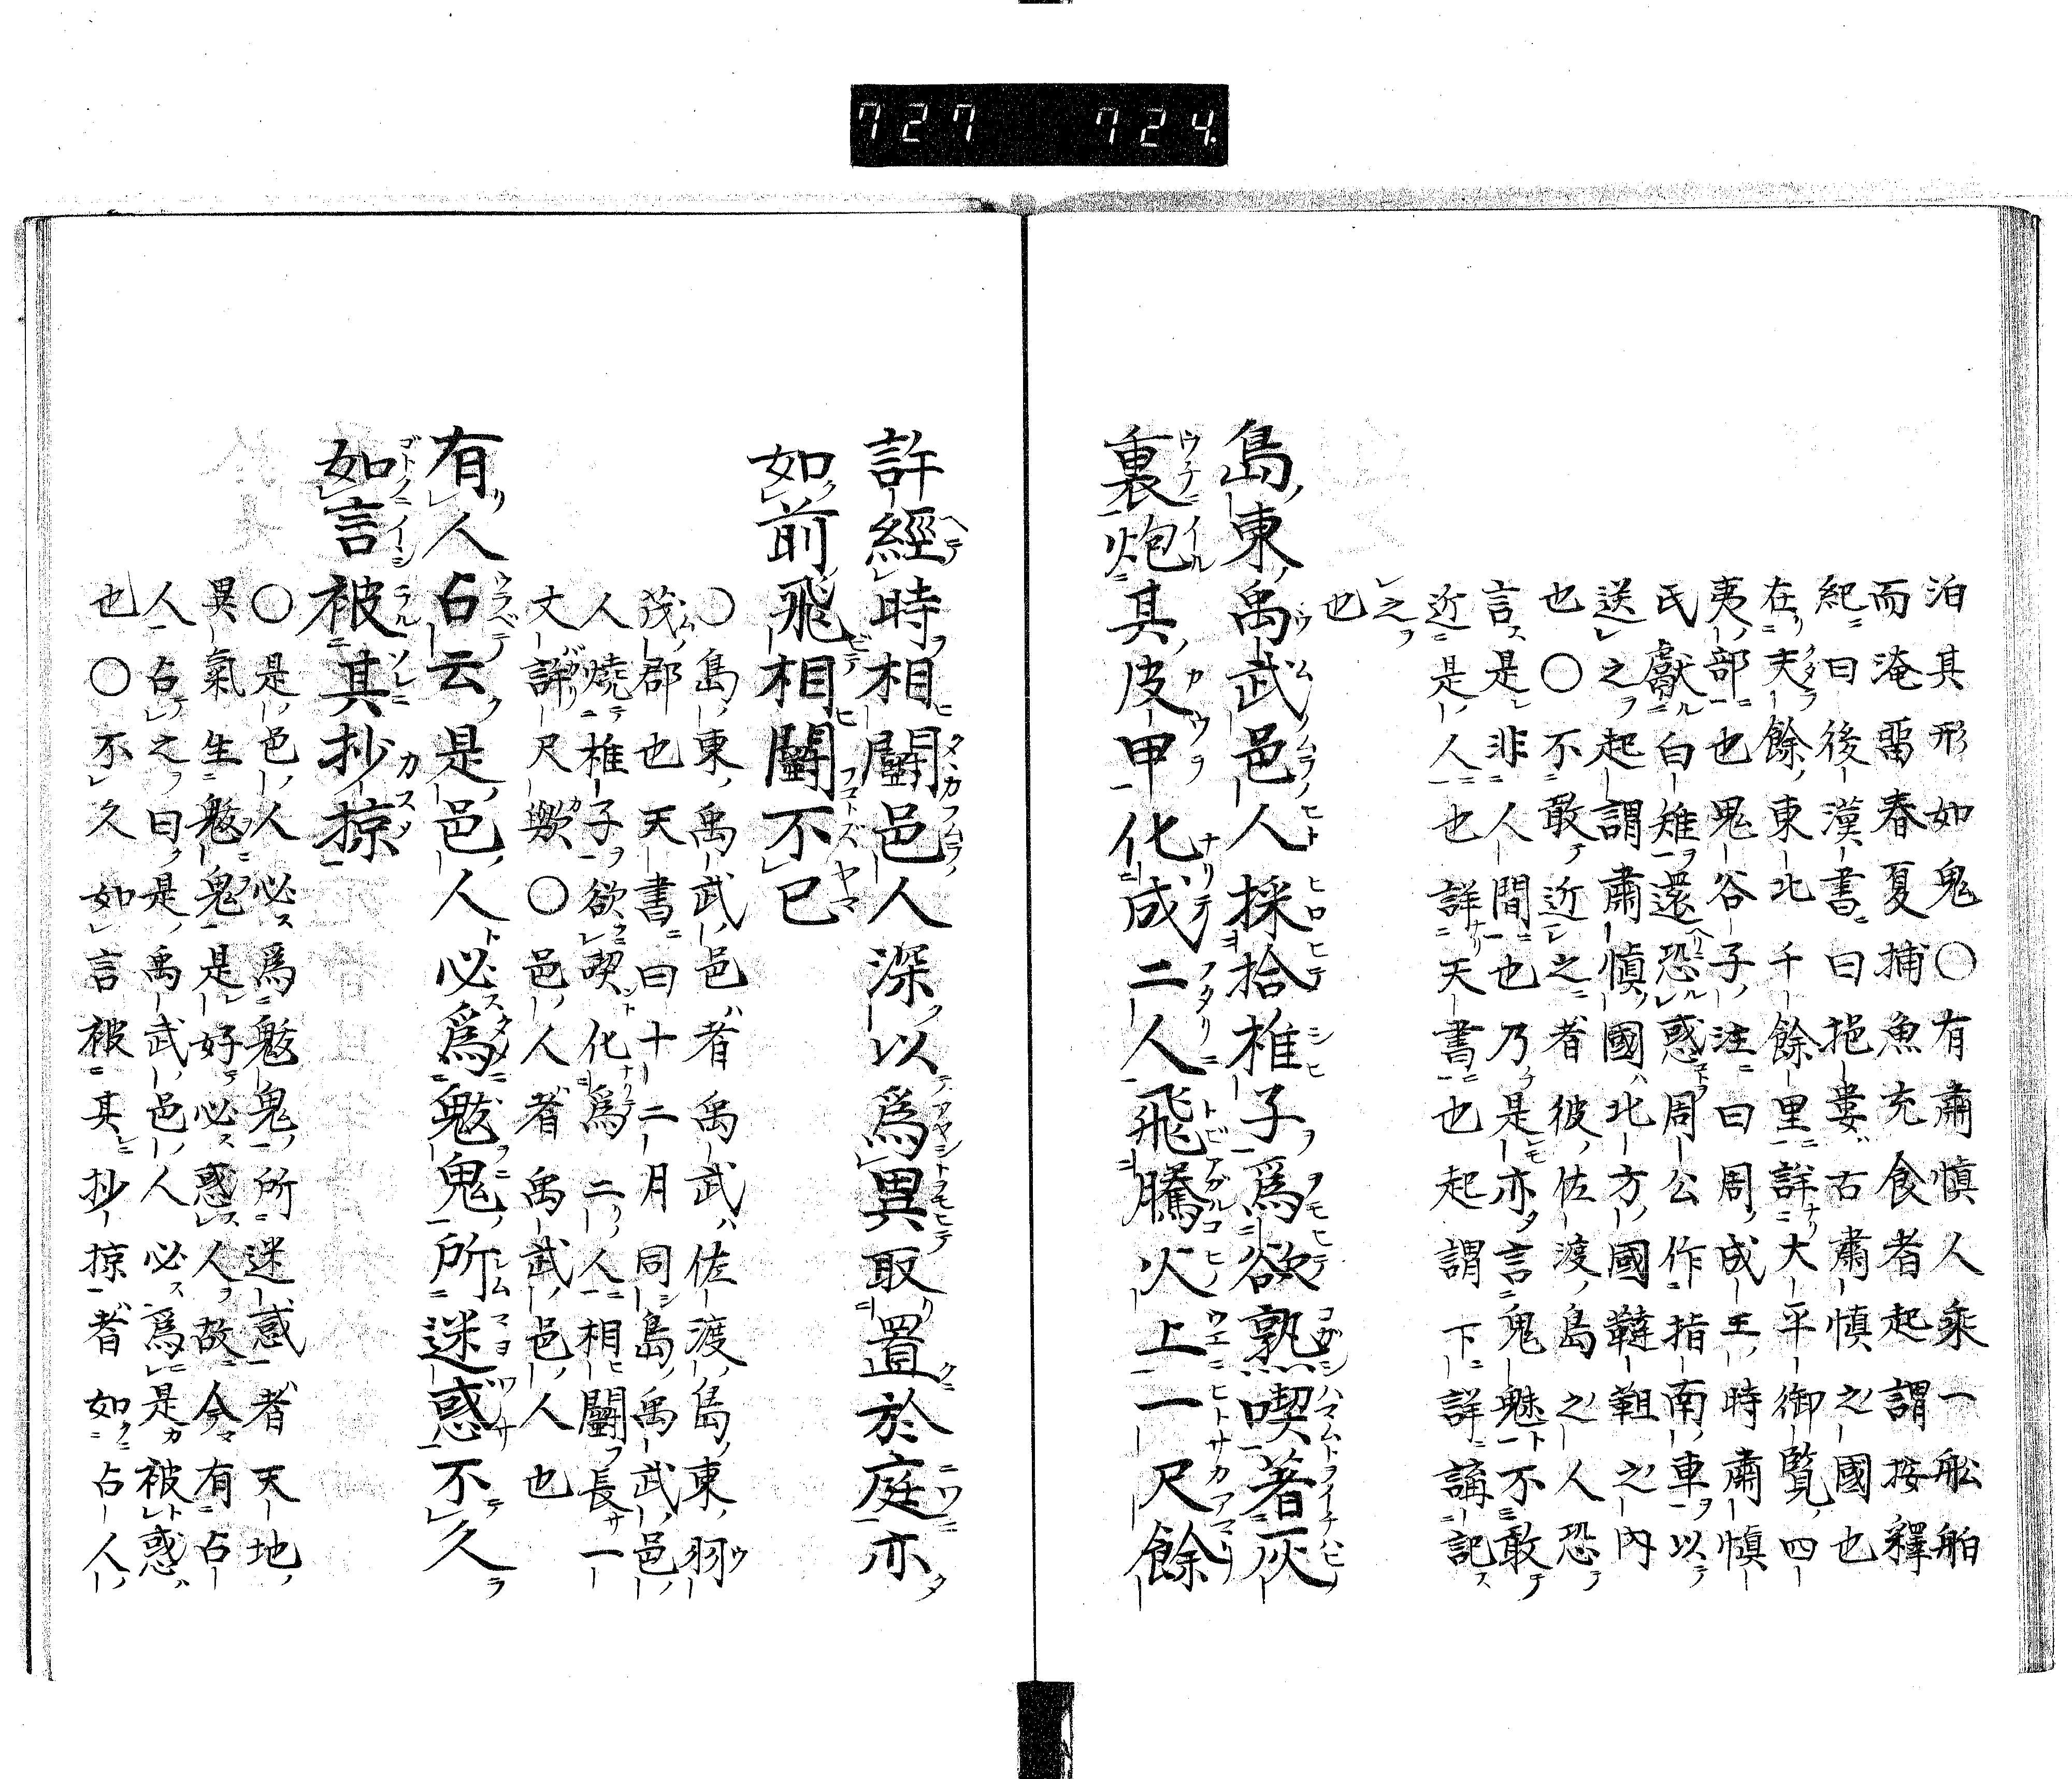 727 724
泊其形如鬼〇有肅慎人乘一舩舶
而淹畱春夏捕魚充食者起謂按釋
紀曰後漢書曰挹婁古肅慎之國也
在夫餘東北千餘里詳大平御覽四
夷部也鬼谷子注曰周成王時肅慎
氏獻白雉還恐惑周公作指南車以
送之起謂肅慎國北方國韃靼之内
也〇不敢近之者彼佐渡島之人恐
言是非人間也乃是亦言鬼魅不敢
近是人也詳天書也起謂下詳講記
之
也
島東禹武邑人採拾椎子爲欲熟喫著灰
裏炮其皮甲化成二人飛騰火上一尺餘
許經時相鬪邑人深以爲異取置於庭亦
如前飛相鬪不已
〇島東禹武邑者禹武佐渡島東羽
茂郡也天書曰十二月同島禹武邑
人燒椎子欲喫化爲二人相鬪長一
丈許尺歟〇邑人者禹武邑人也
有人占云是邑人必爲鬾鬼所迷惑不久
如言被其抄掠
〇是邑人必爲鬾鬼所迷惑者天地
異氣生鬾鬼是好必惑人故今有占
人占之曰是禹武邑人必爲是被惑
也〇不久如言被其抄掠者如占人